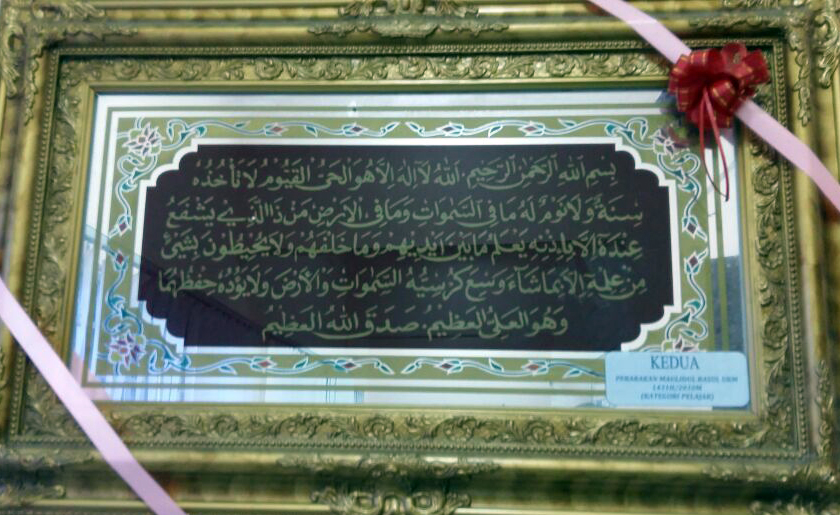 بِسْمِ اللهِ الرَّحْمٰنِ الرَّحِيْمِ. اَللهُ لَا اِلٰهَ اِلَّا هُوَ الْحَىُّ الْقَيُّوْمُ لَا تَأْخُذُهٗ
سِنَةٌ وَّلَا نَوْمٌ لَهٗ مَا فِى السَّمٰوَاتِ وَمَا فِى الْاَرْضِ مَنْ ذَا الَّذِيْ يَشْفَعُ
عِنْدَهٗ اِلَّا بِاِذْنِهٖ يَعْلَمُ مَا بَيْنَ اَيْدِيْهِمْ وَمَا خَلْفَهُمْ وَلَا يُحِيْطُوْنَ بِشَىْءٍ
مِنْ عِلْمِهٖ اِلَّا بِمَا شَآءَ وَسِعَ كُرْسِيُّهُ السَّمٰوَاتِ وَالْاَرْضَ وَلَا يَؤُدُهٗ حِفْظُهُمَا
وَهُوَ الْعَلِىُّ الْعَظِيْمُ. صَدَقَ اللهُ الْعَظِيْمُ
KEDUA
PERARAKAN MAULIDUR RASUL
1431H/2010M
(KATEGORI PELAJAR)